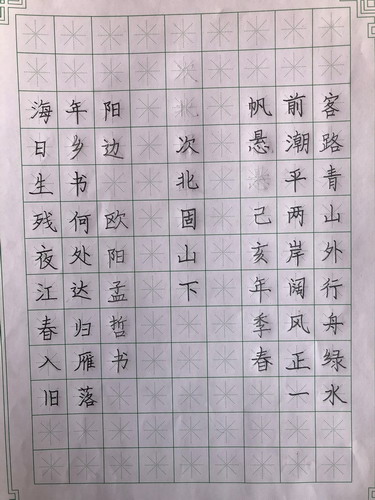 次北固山下
客路青山外行舟绿水
前潮平两岸阔风正一
帆悬
己亥年季春
海日生残夜江春入旧
年乡书何处达归雁落
阳边
欧阳孟哲书